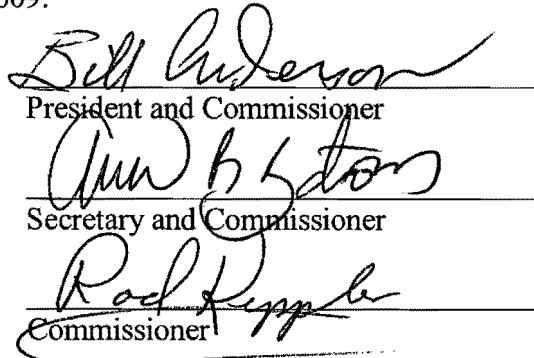 009.
Bill Anderson
President and Commissioner
Ann
Secretary and Commissioner
Rod
Commissioner